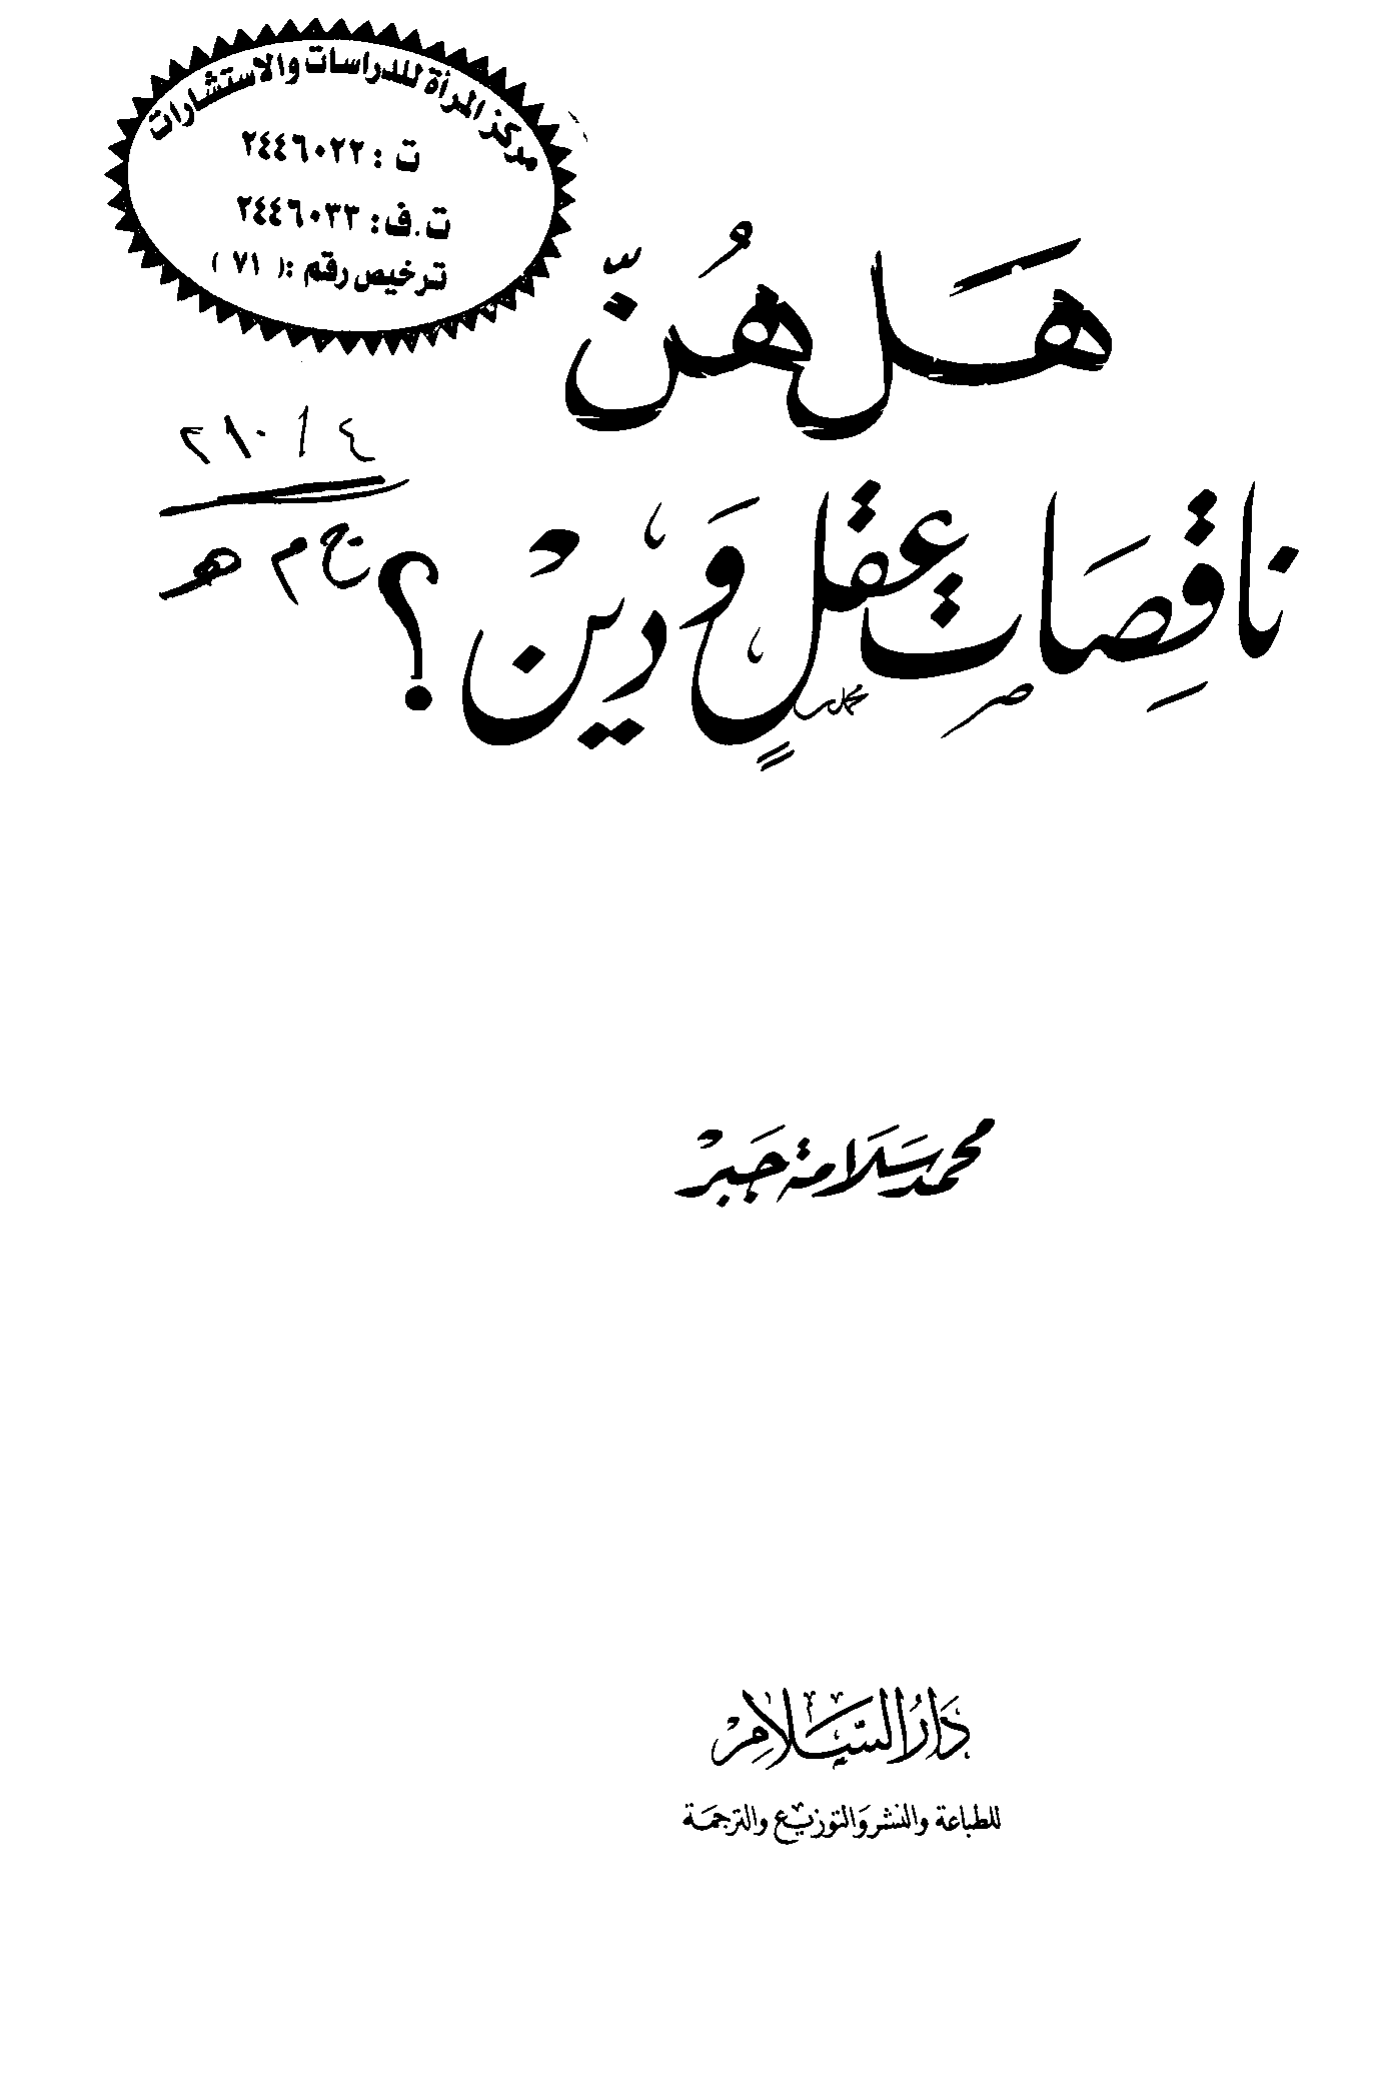 مركز المرأة للدراسات والاستشارات
ت : ٢٤٤٦٠٢٢
ت.ف: ٢٤٤٦٠٣٣
ترخيص رقم :( ٧١ )
هَل هُنّ
نَاقِصَات عَقلٍ وَدِينْ ؟
٢١٠ / ٤
ج م هـ
محمد سَلَامة جَبرْ
دَارُ السَّلَامِ
للطباعة والنشر والتوزيع والترجمة